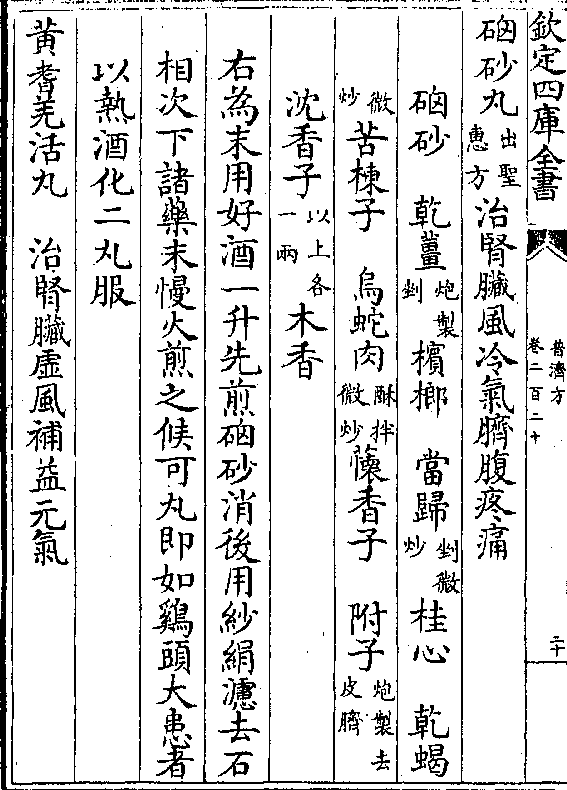 欽定四庫全書
普濟方
卷二百二十
二十
硇砂丸出聖惠方治腎臟風冷氣臍腹疼痛
硇砂 乾薑炮製剉檳榔 當歸剉微炒桂心 乾蝎
微炒苦楝子 烏蛇肉酥拌微炒懷香子 附子炮製去皮臍
沈香子以上各一兩木香
右為末用好酒一升先煎硇砂消後用紗絹濾去石
相次下諸藥末慢火煎之候可丸即如鷄頭大患者
以熱酒化二丸服
黄耆羌活丸 治腎臟虛風補益元氣